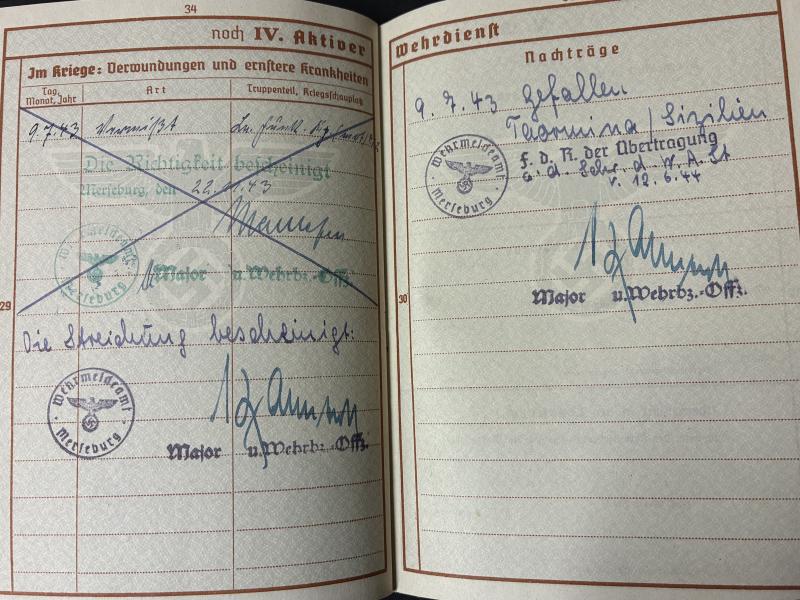 34
noch IV. Aktiver
Im Kriege: Verwundungen und ernstere Krankheiten
Tag, Monat, Jahr
Art
Truppenteil, Kriegsschauplatz
9.7.43 Vermißt Ln. Funk.
Die Richtigkeit bescheinigt
Merseburg, den 22. 43
Wehrmeldeamt Merseburg
Major u. Wehrbz.-Offz.
29
Die Streichung bescheinigt:
Wehrmeldeamt
Merseburg
Major u. Wehrbz.-Offz.
Wehrdienst
Nachträge
9.7.43 Gefallen
Taormina / Sizilien
f. d. R. der Übertragung
a. d. Schr. d. W.A.St
v. 12.6.44
Wehrmeldeamt
Merseburg
30
Major u. Wehrbz.-Offz.